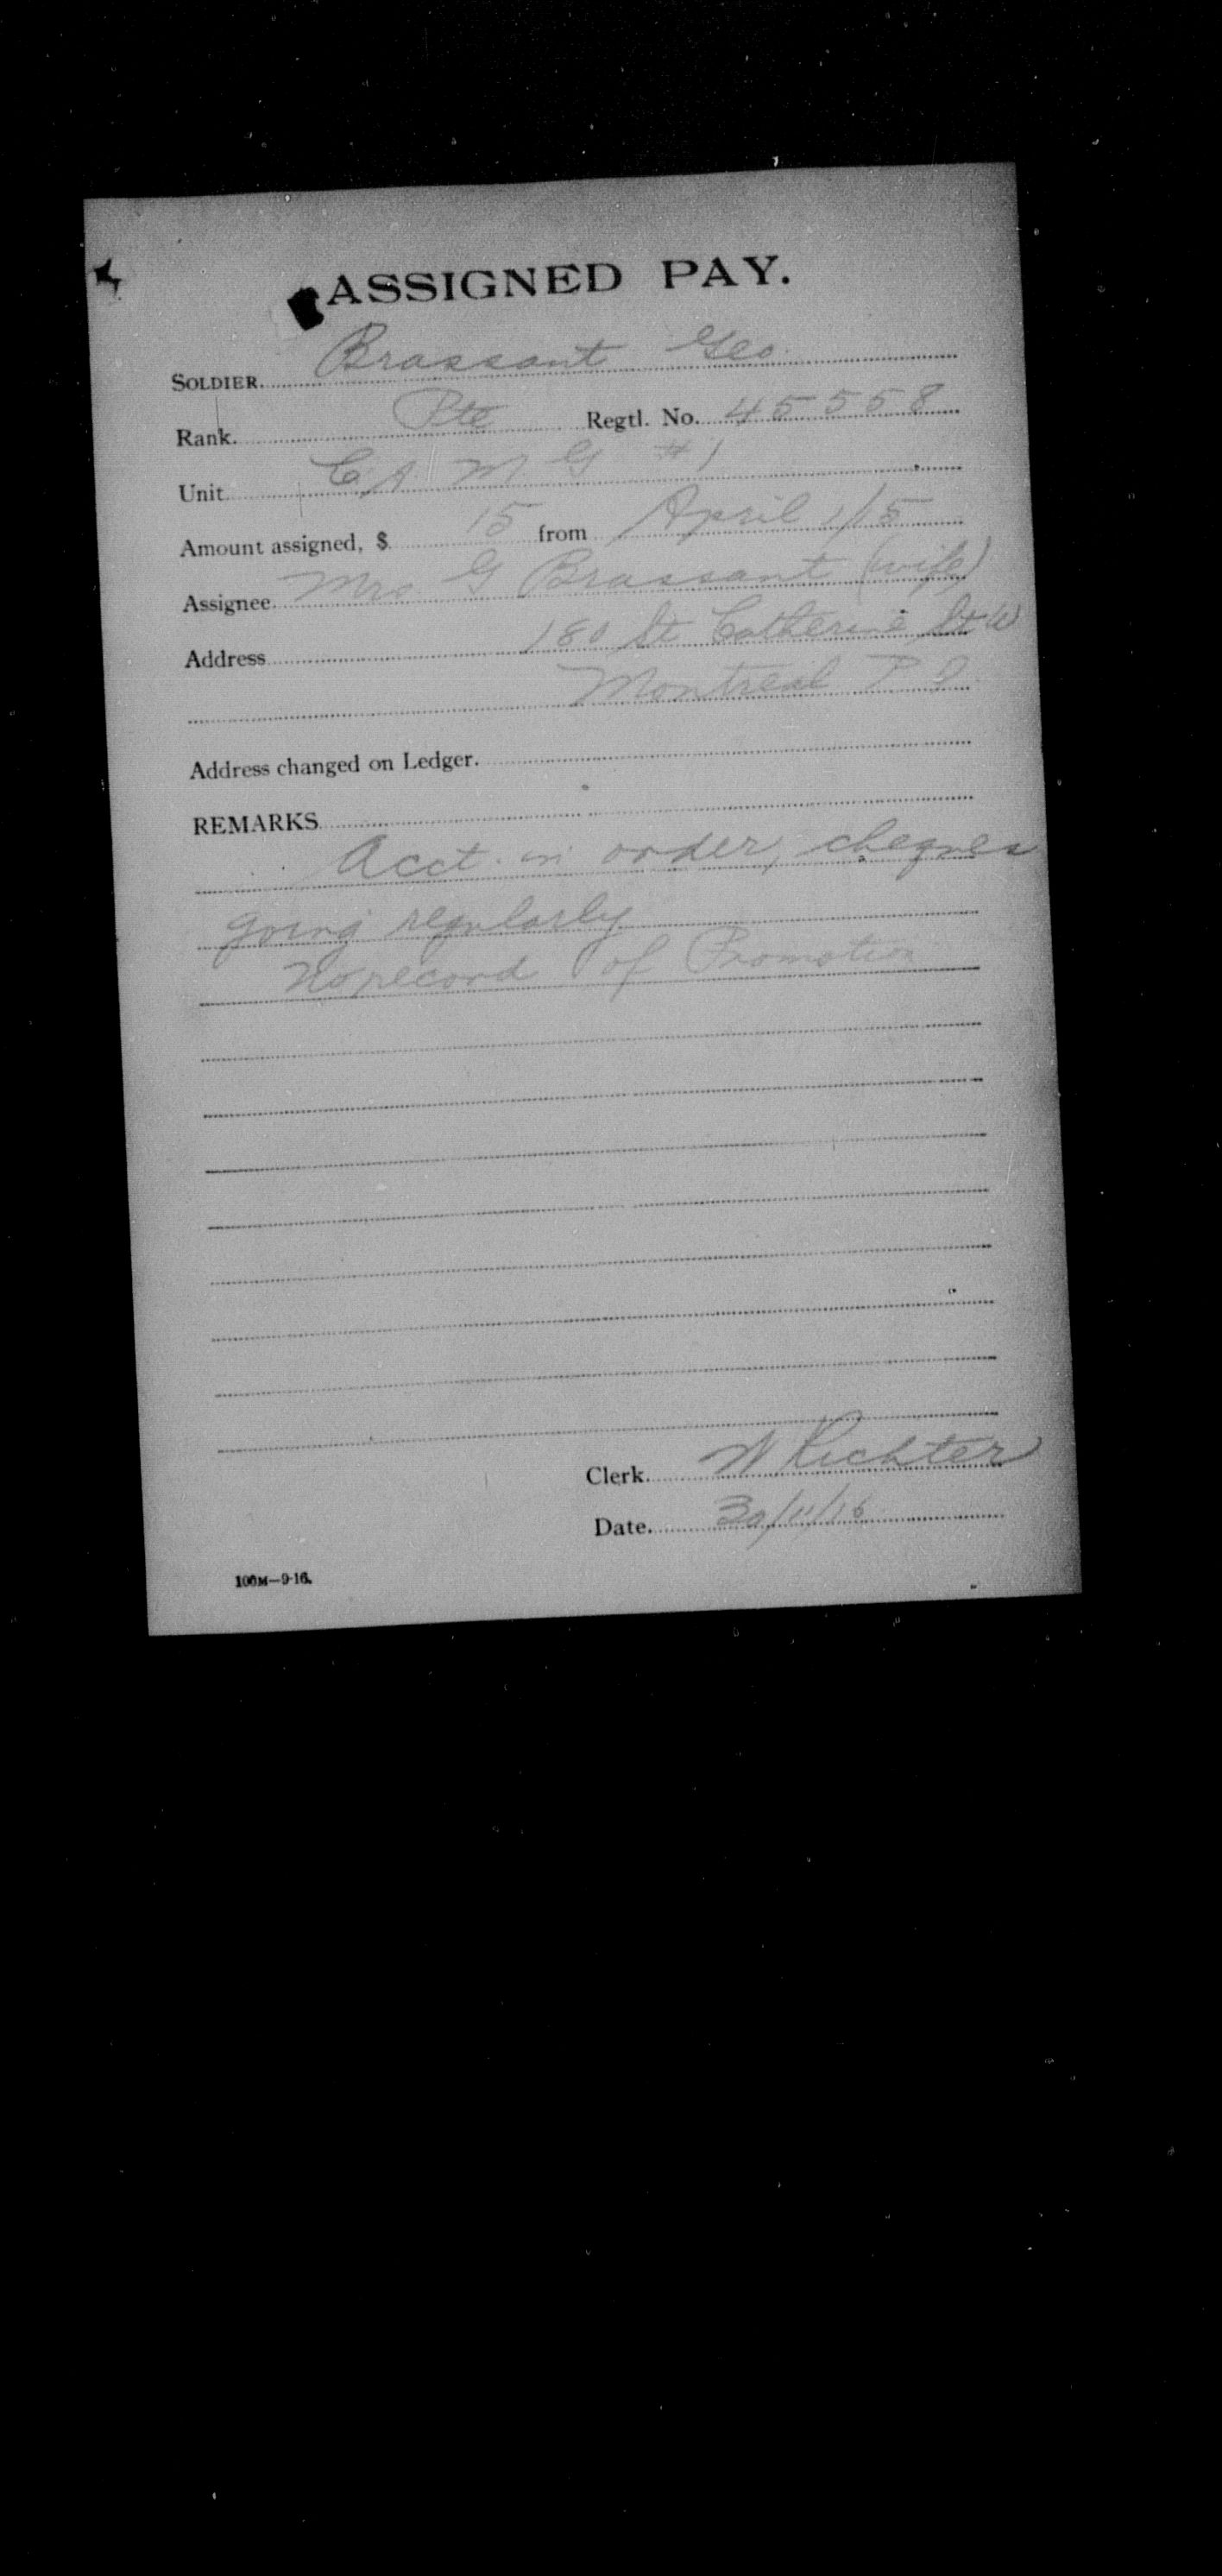 ASSIGNED PAY.
SOLDIER Brassant Geo
Rank. Pte Regtl. No. 45558
Unit C A M G #1
Amount assigned, $ 15 from April 1/15
Assignee Mrs G Brassant (wife)
Address 180 St Catherine St W
Montreal P Q
Address changed on Ledger.
REMARKS
Acct. in order, cheques
going regularly
No record of Promotion
Clerk W Richter
Date. 30/11/16
100M—9-16.